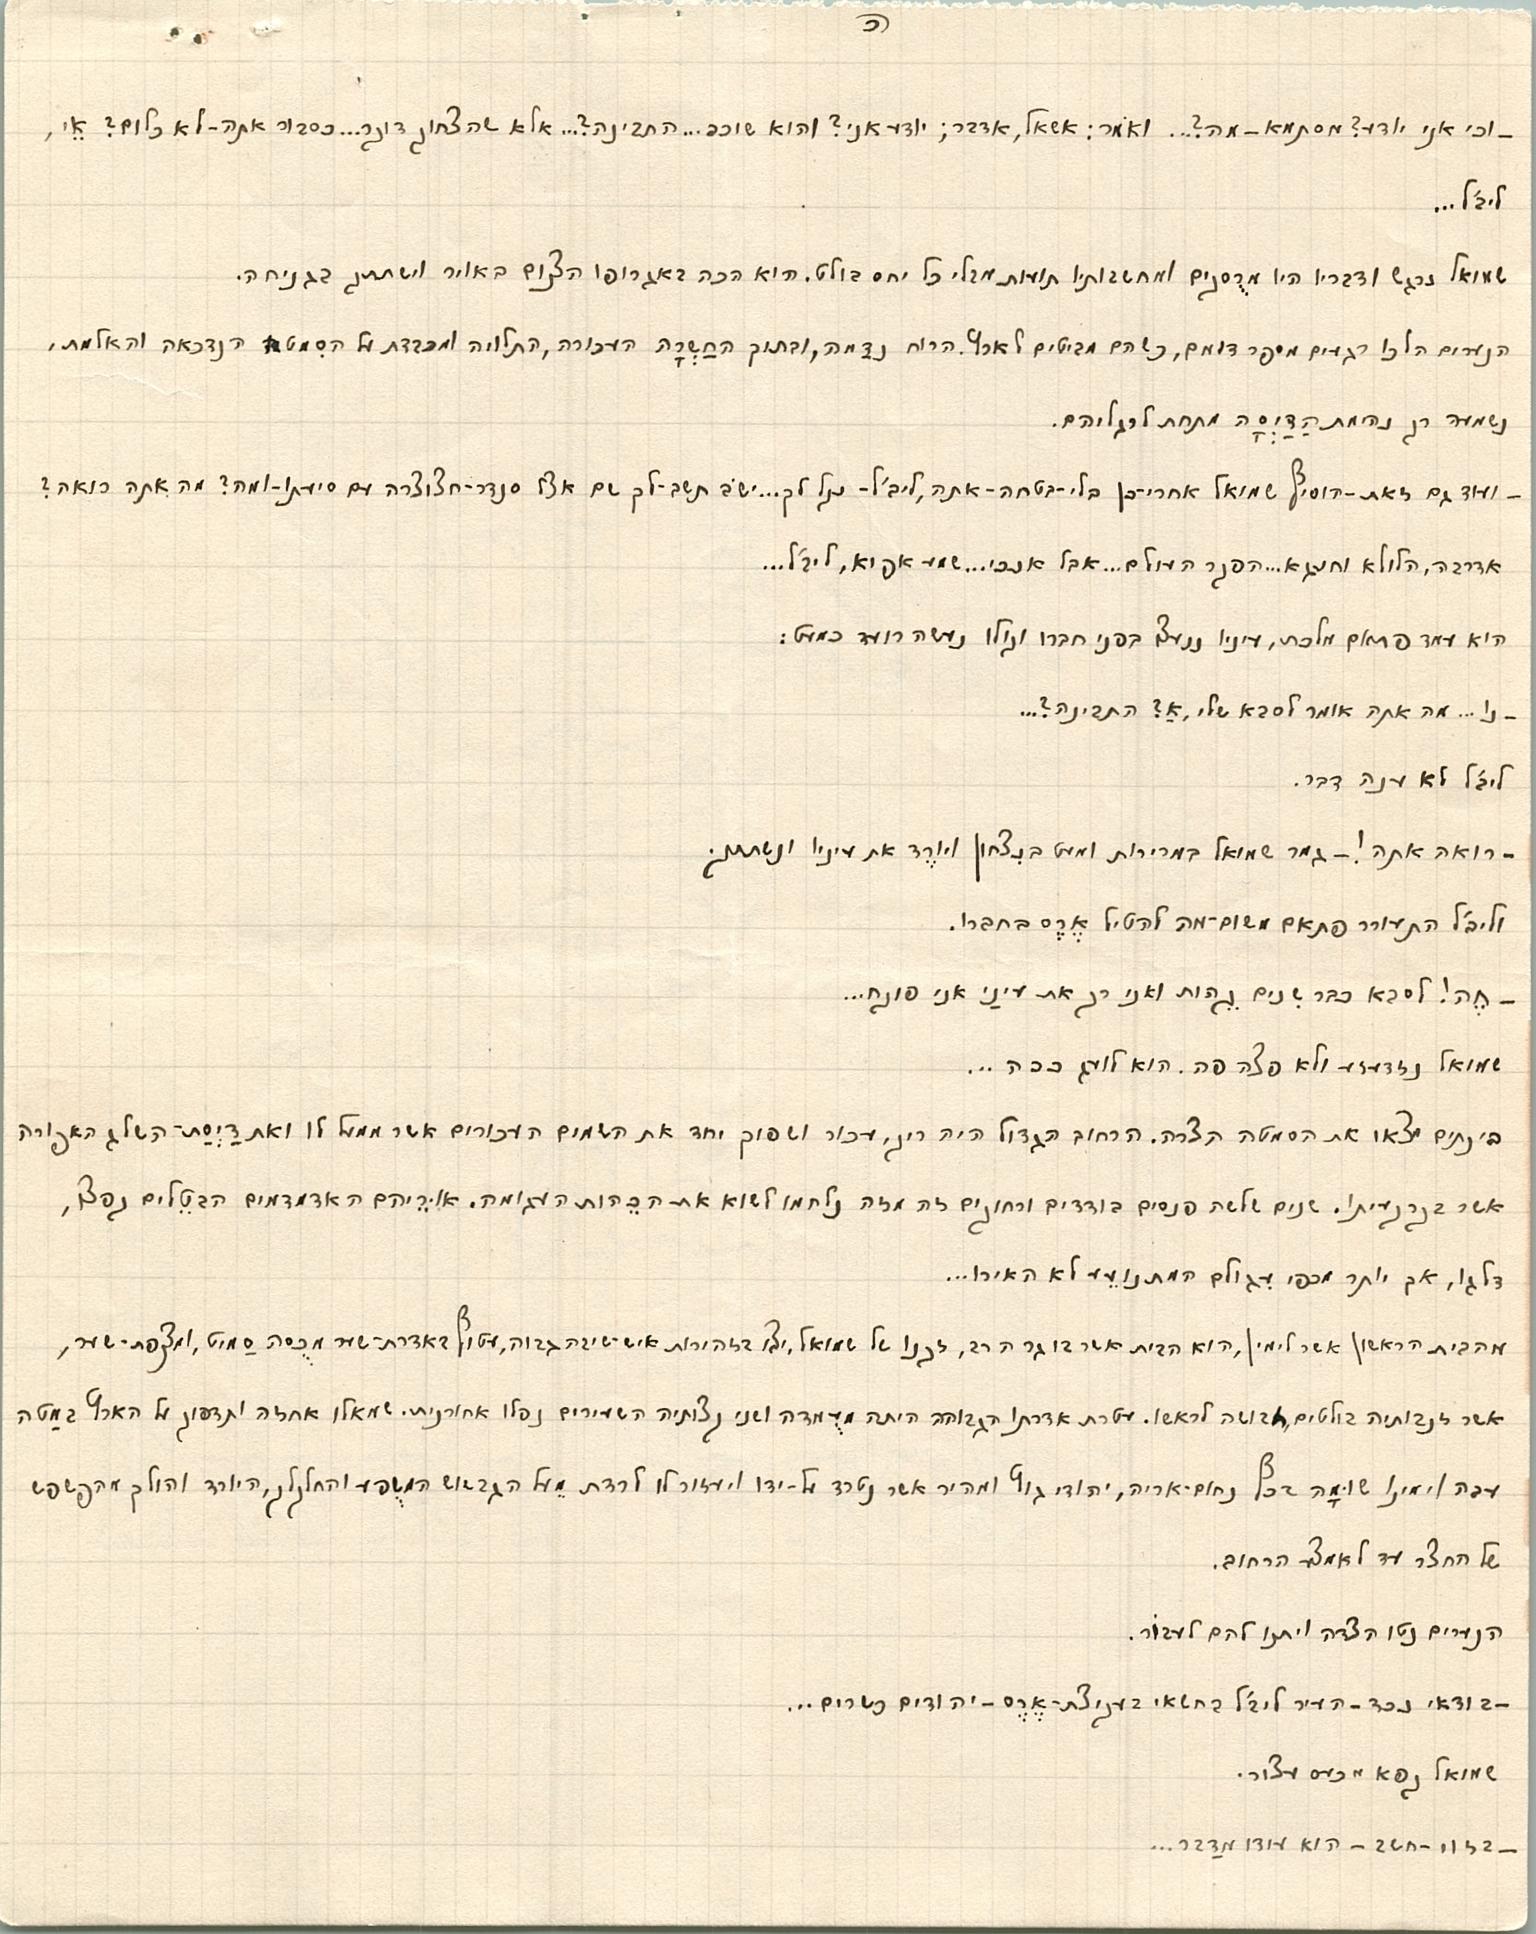 כ
– וכי אני יודע? מסתמא – מה?... ואמר: אשאל, אדבר; יודע אני? והוא שוכב... התבינה?... אלא שהצחוק דוקר... כסבור אתה – לא כלום? אֵי,
ליב'ל...
שמואל נרגש ודבריו היו מרֻסנים ומחשבותיו תועות מבלי כל יחס בולט. הוא הכה באגרופו הצנום באויר וישתתק בגניחה.
הנערים הלכו רגעים מספר דומם, כשהם מביטים לארץ. הרוח נדַמה, ובתוך הַחַשְרָה העכורה, התלויה ומכבדת על הסִמטה הנדכאה והאלמת,
נשמעה רק נהימת הַדַיְסָה מתחת לרגליהם.
– ועוד גם זאת – הוסיף שמואל אחרי־כן בלי־בטחה – אתה, ליב'ל – נקל לך... ישב תשב־לך שם אצל סנדר־חצוצרה עם סיעתו – ומה? מה אתה רואה?
אדרבה, הלולא וחנגא... הפקר העולם... אבל אנכי... שמע אפוא, ליב'ל...
הוא עמד פתאום מלכת, עיניו ננעצו בפני חברו וקולו נעשה רועד כמעט:
– נו... מה אתה אומר לסבא שלי, אַ? התבינה?...
ליב'ל לא ענה דבר.
– רואה אתה! – גמר שמואל במרירות ומעט בנצחון ויורֶד את עיניו ונשתתק.
וליב'ל התעורר פתאם משום־מה להטיל אֶרֶס בחברו.
– חֶה! לסבא כבר שִנים קֵהות ואני רק את עינַי אני פוקח...
שמואל נזדעזע ולא פצה פה. הוא לועג ככה...
בינתים יצאו את הסמטה הצרה. הרחוב הגדול היה ריק, עכור ושפוך יחד את השמים העכורים אשר ממעל לו ואת דַיְסַת־השלג האפורה
אשר בקרקעיתו. שנים שלשה פנסים בודדים ורחוקים זה מזה נלחמו לשוא את הכֵהות העגומה. אוֹרֵיהם האדמדמים הבטֵלים קפצו,
דלגו, אך יותר מכפי עִגולם המתנוֹעֵע לא האירו...
מהבית הראשון אשר לימין, הוא הבית אשר בו גר הרב, זקנו של שמואל, יצא בזהירות איש־שיבה גבוה, עטוף באדרת־שער מכֻסה סַמיט, ומצנפת־שער,
אשר זנבותיה בולטים, חבושה לראשו. עטרת אדרתו הגבוהה היתה מעֻמדה ושני קצותיה השעירים נפלו אחורנית. שמאלו אחזה ותדפוק על הארץ במַטה
עבה וימינו שוֹמָה בכף נחום־אריה, יהודי גוץ ומהיר אשר נטרד על־ידו ויעזור לו לרדת מֵעל הגבשוש המשֻפע והחלקלק, היורד והולך מהפשפש
של החצר עד לאמצע הרחוב.
הנערים נטו הצדה ויתנו להם לעבור.
– בודאי נכד – העיר ליב'ל בחשאי בעקיצת־אֶרֶס – יהודים כשרים...
שמואל קפא מכעס עצור.
– בזוי – חשב – הוא עודו מְדַבר...